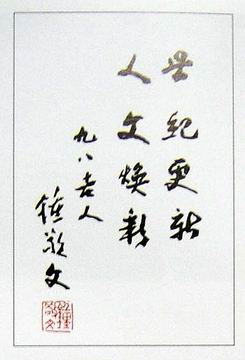 世紀更新
人文焕彩
九八老人
鍾敬文